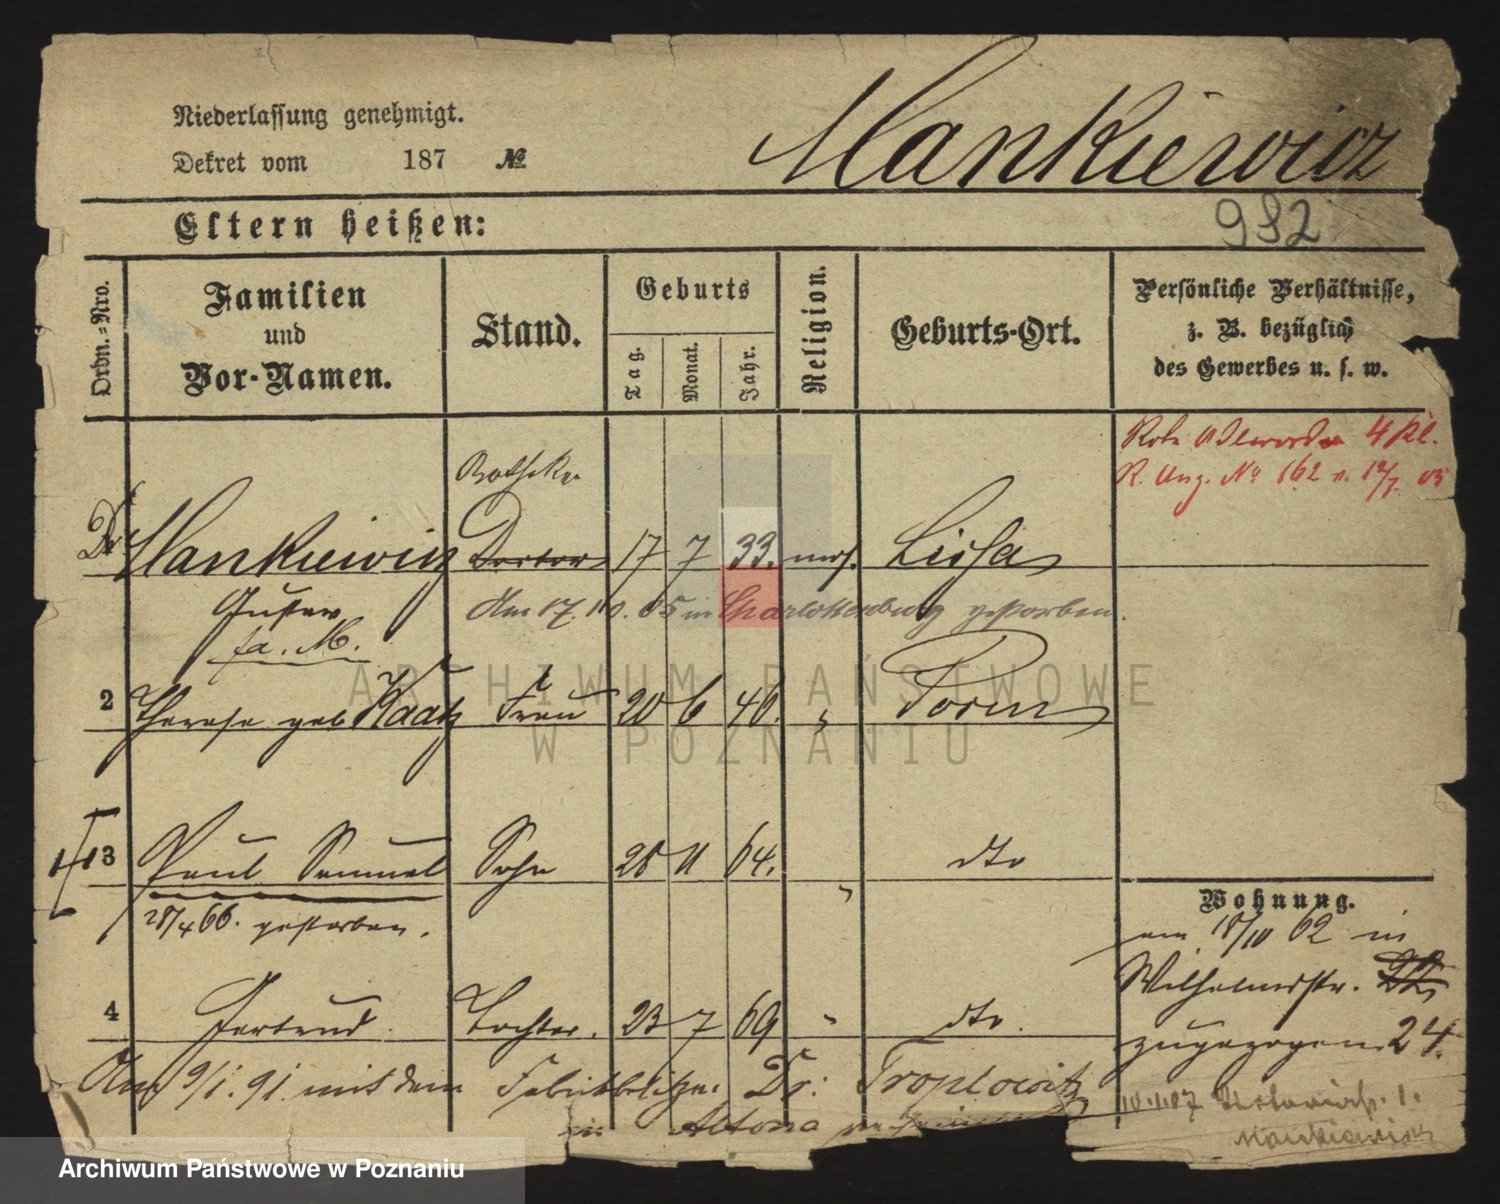 Niederlassung genehmigt.
Dekret vom 187 №
Mankiewicz
932
Eltern heißen:
Ordn.-Nro.
Familien und Vor-Namen.
Stand.
Geburts
Tag.
Monat.
Jahr.
Religion.
Geburts-Ort.
Persönliche Verhältnisse,
z. B. bezüglich
des Gewerbes u. s. w.
4 Kl.
R. Anz. No 162 v. 12/7. 05
Dr Mankiewicz Doctor 17 7 33. mos. Lissa
Gustav
Am 17. 10. 05 in Charlottenburg gestorben.
fa. M.
2 Therese geb Kaatz Frau 20 6 46. " Posen
13 Paul Samuel Sohn 28 11 64. " dto
28/4 66. gestorben.
Wohnung.
am 18/10 62 in
Wilhelmstr. 22
zugezogen 24.
4 Gertrud Tochter. 23 7 69 " dto.
Am 9/1. 91. mit dem Fabrikbesitzer Dr: Troplowitz
in Altona
Mankiewicz
ARCHIWUM PAŃSTWOWE
W POZNANIU
Archiwum Państwowe w Poznaniu